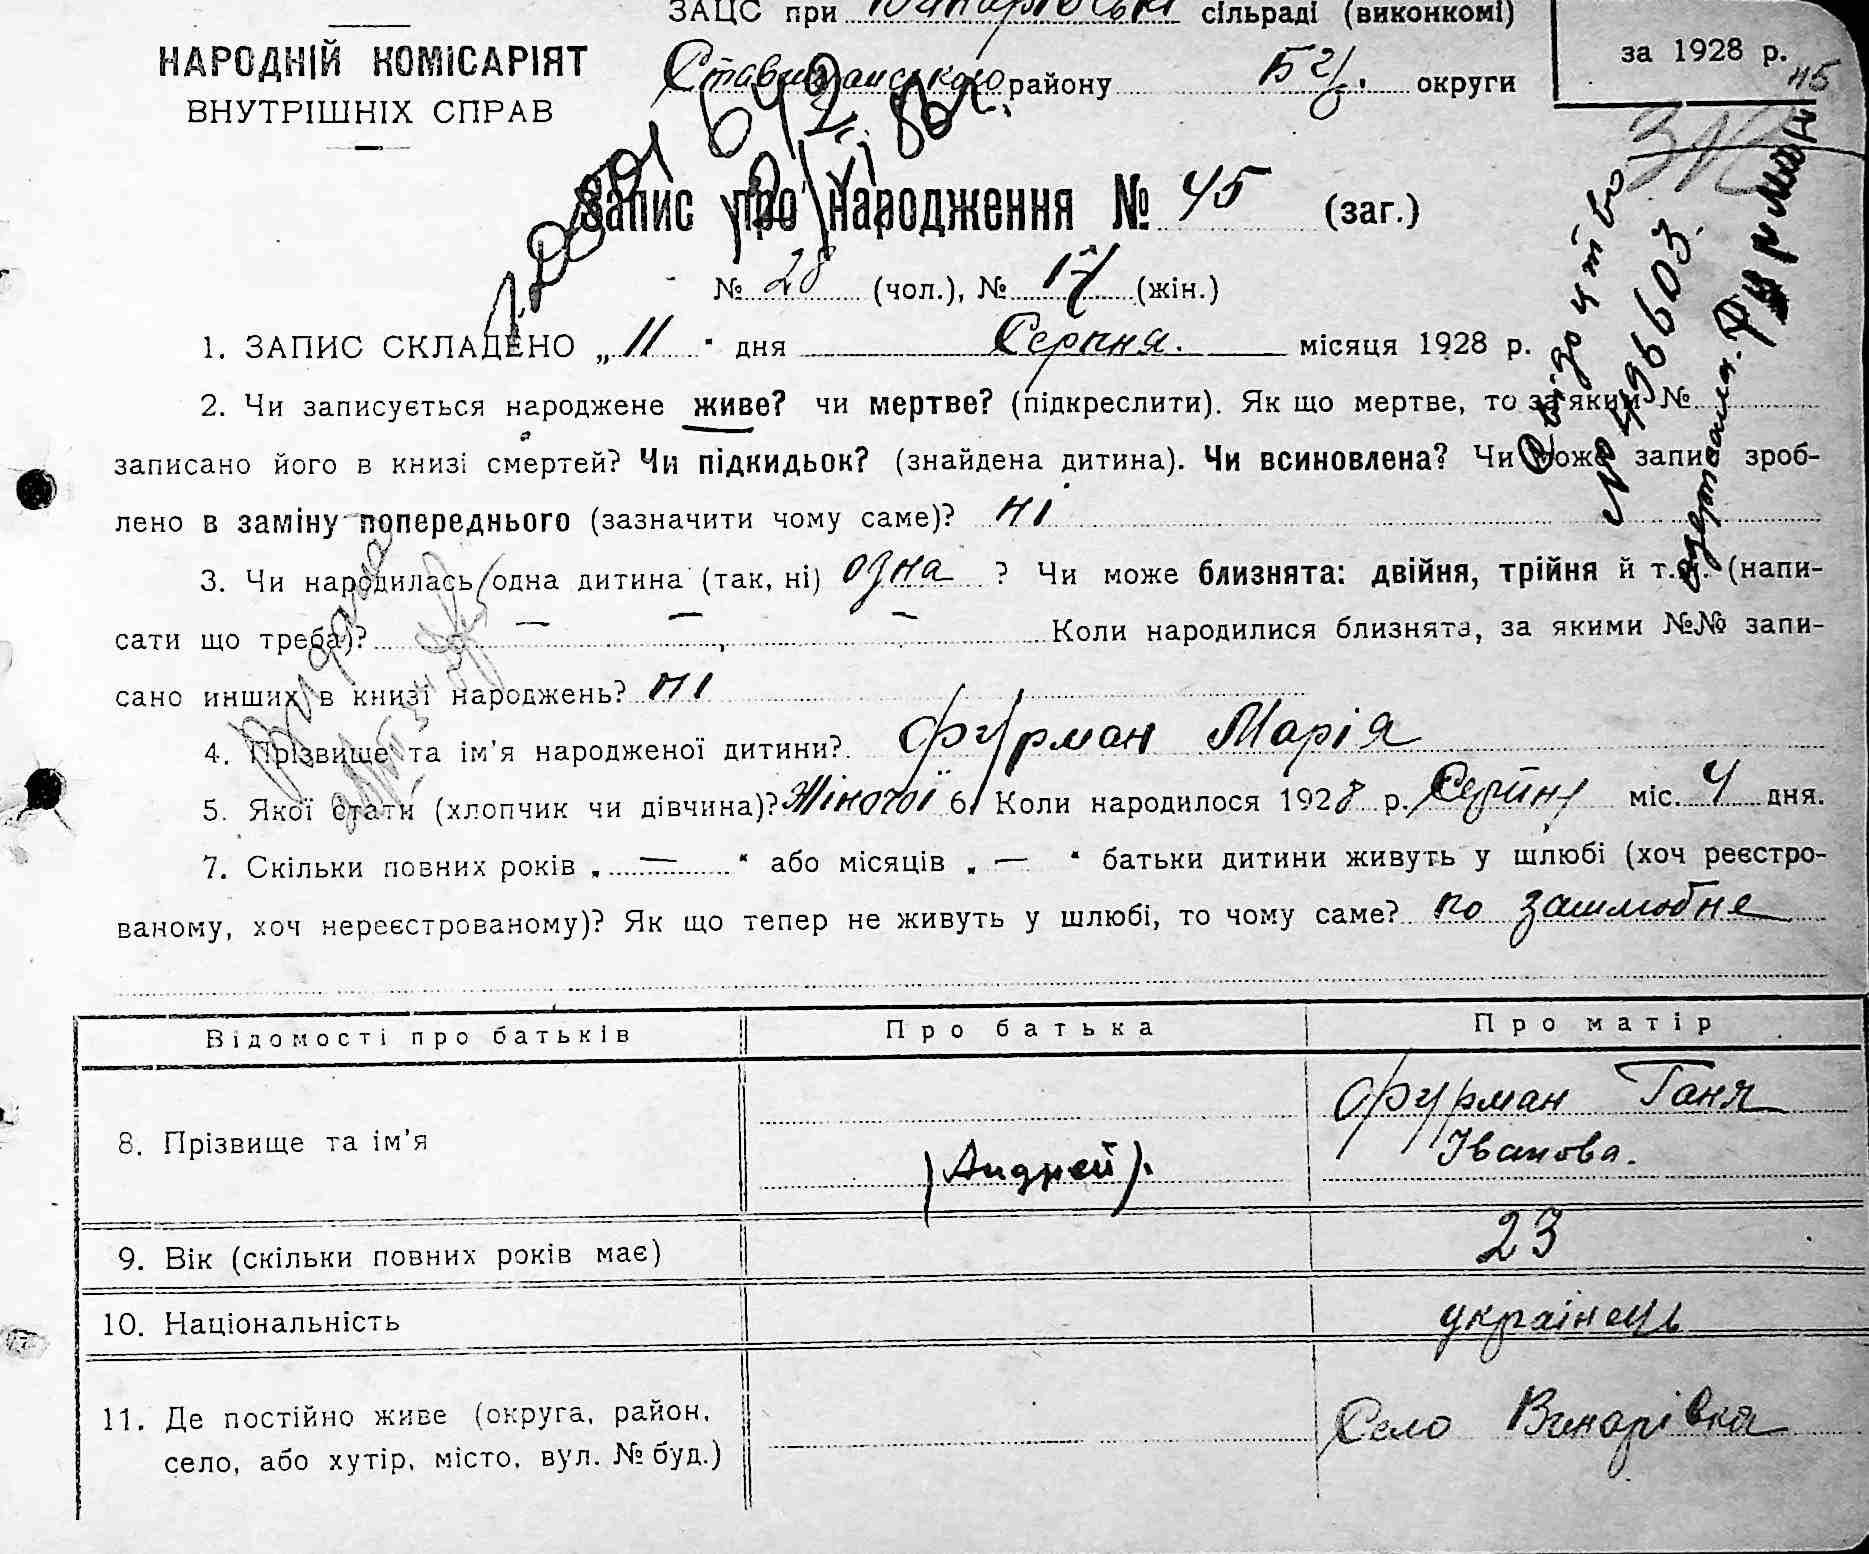 ЗАЦС при сільраді (виконкомі)
НАРОДНІЙ КОМІСАРІЯТ
ВНУТРІШНІХ СПРАВ
району БЦ. округи
за 1928 р.
45
Запис про народження № 45 (заг.)
№ 28 (чол.), № 17 (жін.)
1. ЗАПИС СКЛАДЕНО „11" дня Серпня. місяця 1928 р.
2. Чи записується народжене живе? чи мертве? (підкреслити). Як що мертве, то за яким №
записано його в книзі смертей? Чи підкидьок? (знайдена дитина). Чи всиновлена? Чи може запис зроб-
лено в заміну попереднього (зазначити чому саме)? ні
3. Чи народилась одна дитина (так, ні) одна ? Чи може близнята: двійня, трійня й т.д. (напи-
сати що треба)? — — — Коли народилися близнята, за якими №№ запи-
сано инших в книзі народжень? ні
4. Прізвище та ім'я народженої дитини? Фурман Марія
5. Якої стати (хлопчик чи дівчина)? Жіночої 6. Коли народилося 1928 р. міс. 4 дня.
7. Скільки повних років „ — " або місяців „ — " батьки дитини живуть у шлюбі (хоч реєстро-
ваному, хоч нереєстрованому)? Як що тепер не живуть у шлюбі, то чому саме? по зашлюбне
Відомості про батьків Про батька Про матір
8. Прізвище та ім'я (Андрей). Фурман Ганя
Іванова.
9. Вік (скільки повних років має) 23
10. Національність українець
11. Де постійно живе (округа, район, село, або хутір, місто, вул. № буд.) Село Винарівка
Свідоцтво
№ 496603.